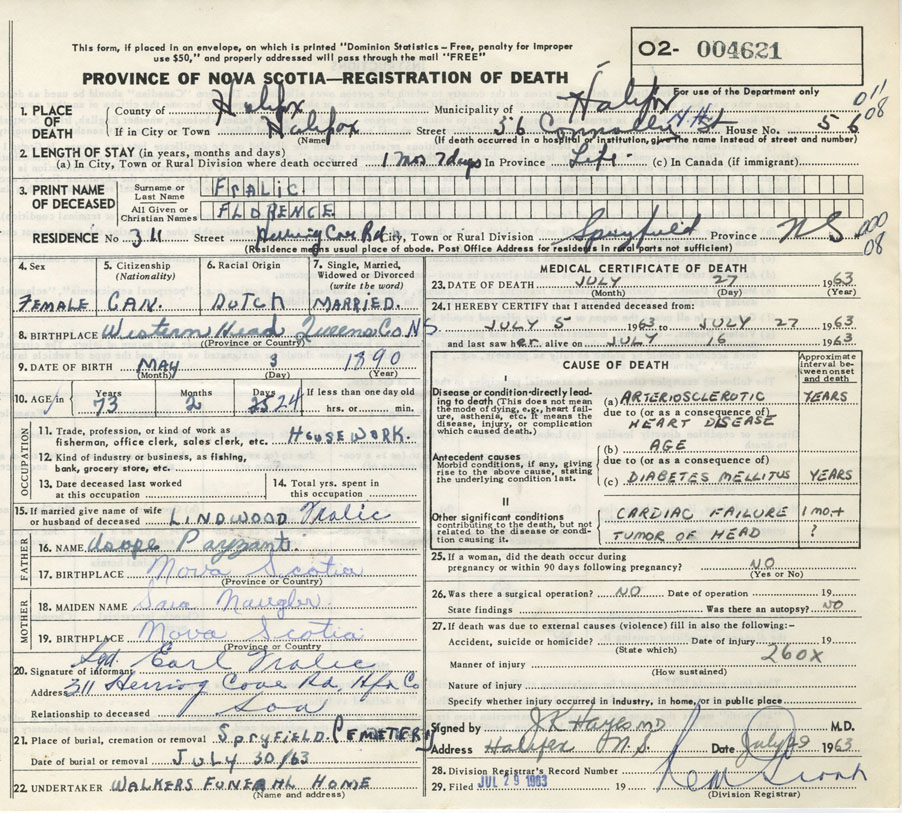 This form, if placed in an envelope, on which is printed "Dominion Statistics – Free, penalty for improper
use $50," and properly addressed will pass through the mail "FREE"
O2- 004621
PROVINCE OF NOVA SCOTIA—REGISTRATION OF DEATH
For use of the Department only
011
08
1. PLACE OF DEATH
County of Halifax Municipality of Halifax
If in City or Town Halifax Street 56 Connolly St House No. 56
(Name) (If death occurred in a hospital or institution, give the name instead of street and number)
2. LENGTH OF STAY (in years, months and days)
(a) In City, Town or Rural Division where death occurred 1 Mos 7 days In Province Life. (c) In Canada (if immigrant)
3. PRINT NAME OF DECEASED
Surname or Last Name FRALIC
All Given or Christian Names FLORENCE
RESIDENCE No 311 Street Herring Cove Rd. City, Town or Rural Division Spryfield Province NS
(Residence means usual place of abode. Post Office Address for residents in rural parts not sufficient)
000
08
4. Sex FEMALE
5. Citizenship (Nationality) CAN.
6. Racial Origin DUTCH
7. Single, Married, Widowed or Divorced (write the word) MARRIED.
8. BIRTHPLACE Western Head Queens Co NS
(Province or Country)
9. DATE OF BIRTH MAY 3 1890
(Month) (Day) (Year)
10. AGE in Years 73 Months 2 Days 24 If less than one day old
hrs. or min.
OCCUPATION
11. Trade, profession, or kind of work as
fisherman, office clerk, sales clerk, etc. HOUSEWORK.
12. Kind of industry or business, as fishing,
bank, grocery store, etc.
13. Date deceased last worked
at this occupation
14. Total yrs. spent in
this occupation
15. If married give name of wife
or husband of deceased LINDWOOD Fralic
FATHER
16. NAME Payzant.
17. BIRTHPLACE Nova Scotia
(Province or Country)
MOTHER
18. MAIDEN NAME Sara Naugler
19. BIRTHPLACE Nova Scotia
(Province or Country)
20. Signature of informant Sgd. Earl Fralic
Address 311 Herring Cove Rd, Hfx Co
Relationship to deceased Son
21. Place of burial, cremation or removal SPRYFIELD CEMETERY
Date of burial or removal JULY 30/63
22. UNDERTAKER WALKERS FUNERAL HOME
(Name and address)
MEDICAL CERTIFICATE OF DEATH
23. DATE OF DEATH JULY 27 1963
(Month) (Day) (Year)
24. I HEREBY CERTIFY that I attended deceased from:
JULY 5 1963 to JULY 27 1963
and last saw her alive on JULY 16 1963
CAUSE OF DEATH
Approximate interval between onset and death
I
Disease or condition directly leading to death (This does not mean the mode of dying, e.g., heart failure, asthenia, etc. It means the disease, injury, or complication which caused death.)
(a) ARTERIOSCLEROTIC YEARS
due to (or as a consequence of)
HEART DISEASE
Antecedent causes
Morbid conditions, if any, giving rise to the above cause, stating the underlying condition last.
(b) AGE
due to (or as a consequence of)
(c) DIABETES MELLITUS YEARS
II
Other significant conditions
contributing to the death, but not related to the disease or condition causing it.
CARDIAC FAILURE 1 mo+
TUMOR OF HEAD ?
25. If a woman, did the death occur during
pregnancy or within 90 days following pregnancy? NO
(Yes or No)
26. Was there a surgical operation? NO Date of operation 19
State findings Was there an autopsy? NO
27. If death was due to external causes (violence) fill in also the following:–
Accident, suicide or homicide? Date of injury 19
(State which)
260X
Manner of injury
(How sustained)
Nature of injury
Specify whether injury occurred in industry, in home, or in public place
Signed by J.K. Hayes MD M.D.
Address Halifax N.S. Date July 29 1963
28. Division Registrar's Record Number
29. Filed JUL 29 1963 19
(Division Registrar)